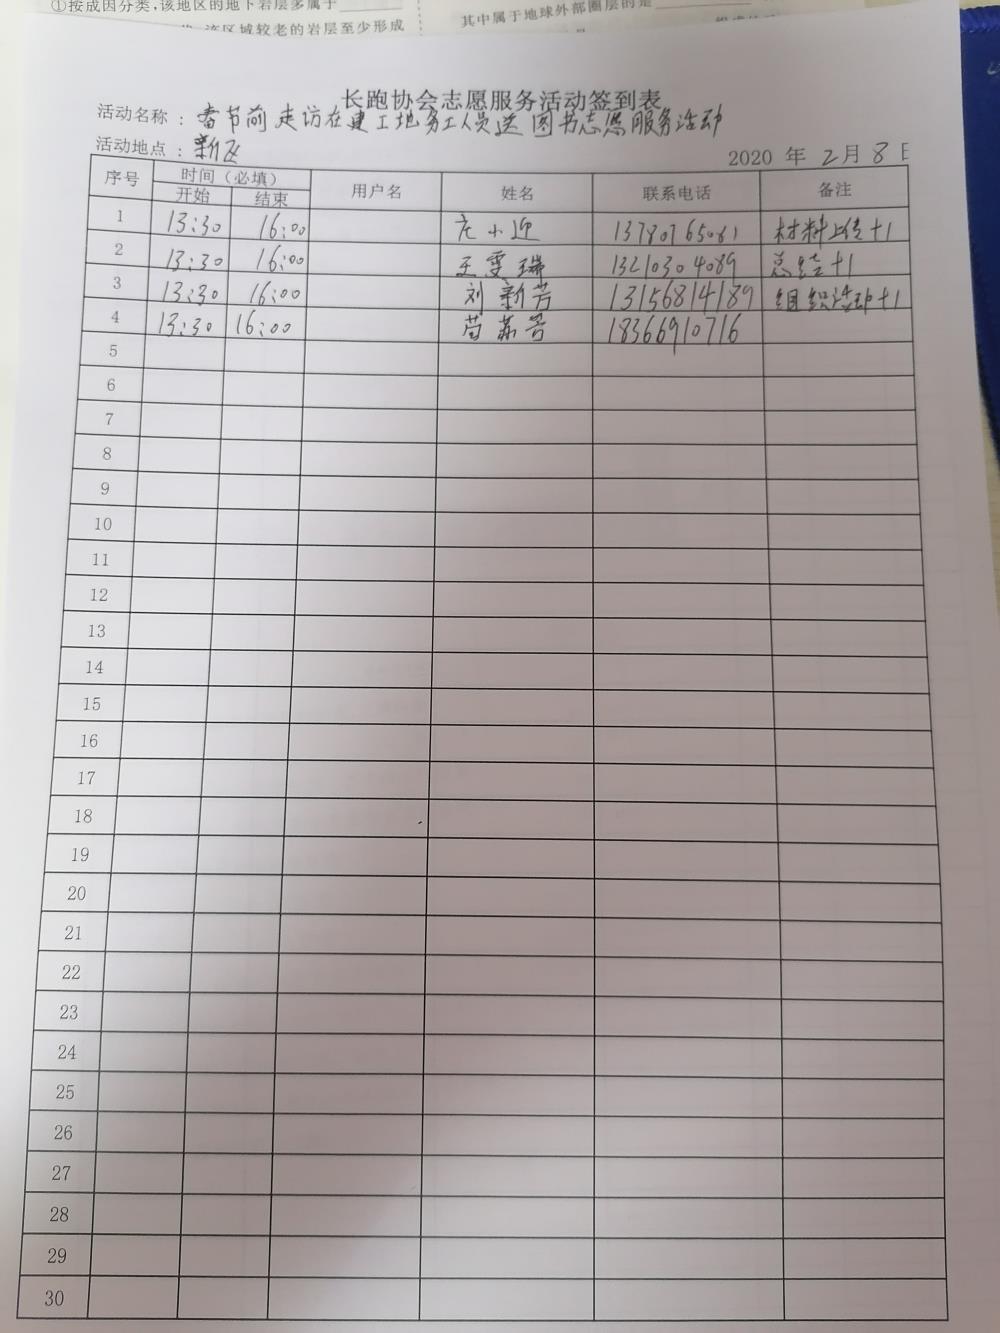 ①按成因分类,该地区的地下岩层多属于
该区域较老的岩层至少形成
其中属于地球外部圈层的是
长跑协会志愿服务活动签到表
活动名称：春节前走访在建工地务工人员送图书志愿服务活动
活动地点：新区
2020 年 2月 8日
序号 时间（必填） 用户名 姓名 联系电话 备注
开始 结束
1 13:30 16:00 庄小迎 13780765081 材料上传+1
2 13:30 16:00 王雯瑞 13210304089 总结+1
3 13:30 16:00 刘新芳 13156814189 组织活动+1
4 13:30 16:00 苏芳 18366910716
5
6
7
8
9
10
11
12
13
14
15
16
17
18
19
20
21
22
23
24
25
26
27
28
29
30